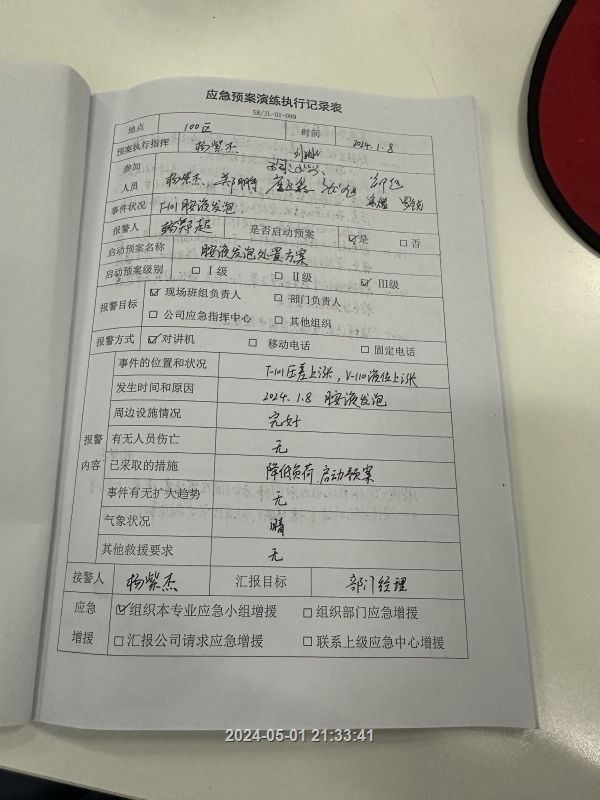 应急预案演练执行记录表
SR/JL-01-099
地点 100区 时间 2024.1.8
预案执行指挥 杨紫杰
参加人员 杨紫杰、郑鹏
事件状况 T-101胺液发泡
报警人 是否启动预案 ☑是 □否
启动预案名称 胺液发泡处置方案
启动预案级别 □Ⅰ级 □Ⅱ级 ☑Ⅲ级
报警目标 ☑现场班组负责人 □部门负责人
□公司应急指挥中心 □其他组织
报警方式 ☑对讲机 □移动电话 □固定电话
报警内容
事件的位置和状况 T-101压差上涨，V-110液位上涨
发生时间和原因 2024.1.8 胺液发泡
周边设施情况 完好
有无人员伤亡 无
已采取的措施 降低负荷.启动预案
事件有无扩大趋势 无
气象状况 晴
其他救援要求 无
接警人 杨紫杰 汇报目标 部门经理
应急增援 ☑组织本专业应急小组增援 □组织部门应急增援
□汇报公司请求应急增援 □联系上级应急中心增援
2024-05-01 21:33:41